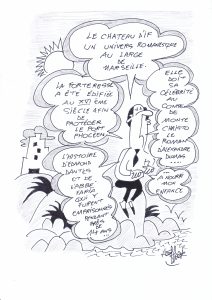 LE CHATEAU D'IF
UN UNIVERS ROMANESQUE
AU LARGE
DE
MARSEILLE.
LA FORTERESSE
A ÉTÉ ÉDIFIÉE
AU XVI ÈME
SIÈCLE AFIN
DE
PROTÉGER
LE PORT
PHOCÉEN
ELLE
DOIT
SA
CÉLÉBRITÉ
AU COMTE
DE
MONTE
CHRISTO
LE
ROMAN
D'ALEXANDRE
DUMAS
QUI
A NOURRI
MON
ENFANCE
L'HISTOIRE
D'EDMOND
DANTES
ET DE
L'ABBÉ
FARIA
QUI Y
FURENT
EMPRISONNÉS
PENDANT
PRÈS
DE
14 ANS